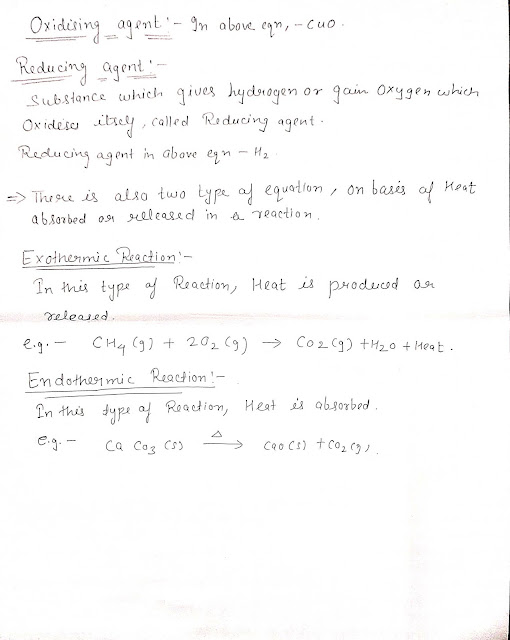 Oxidising agent :- In above eqn, - CuO.
Reducing agent :-
Substance which gives hydrogen or gain Oxygen which
Oxidises itself, called Reducing agent.
Reducing agent in above eqn - H2.
=> There is also two type of equation, on basis of Heat
absorbed or released in a reaction.
Exothermic Reaction :-
In this type of Reaction, Heat is produced or
released.
e.g. - CH4 (g) + 2O2 (g) → CO2 (g) + H2O + Heat.
Endothermic Reaction :-
In this type of Reaction, Heat is absorbed.
e.g. - Ca CO3 (s) △→ CaO (s) + CO2 (g).